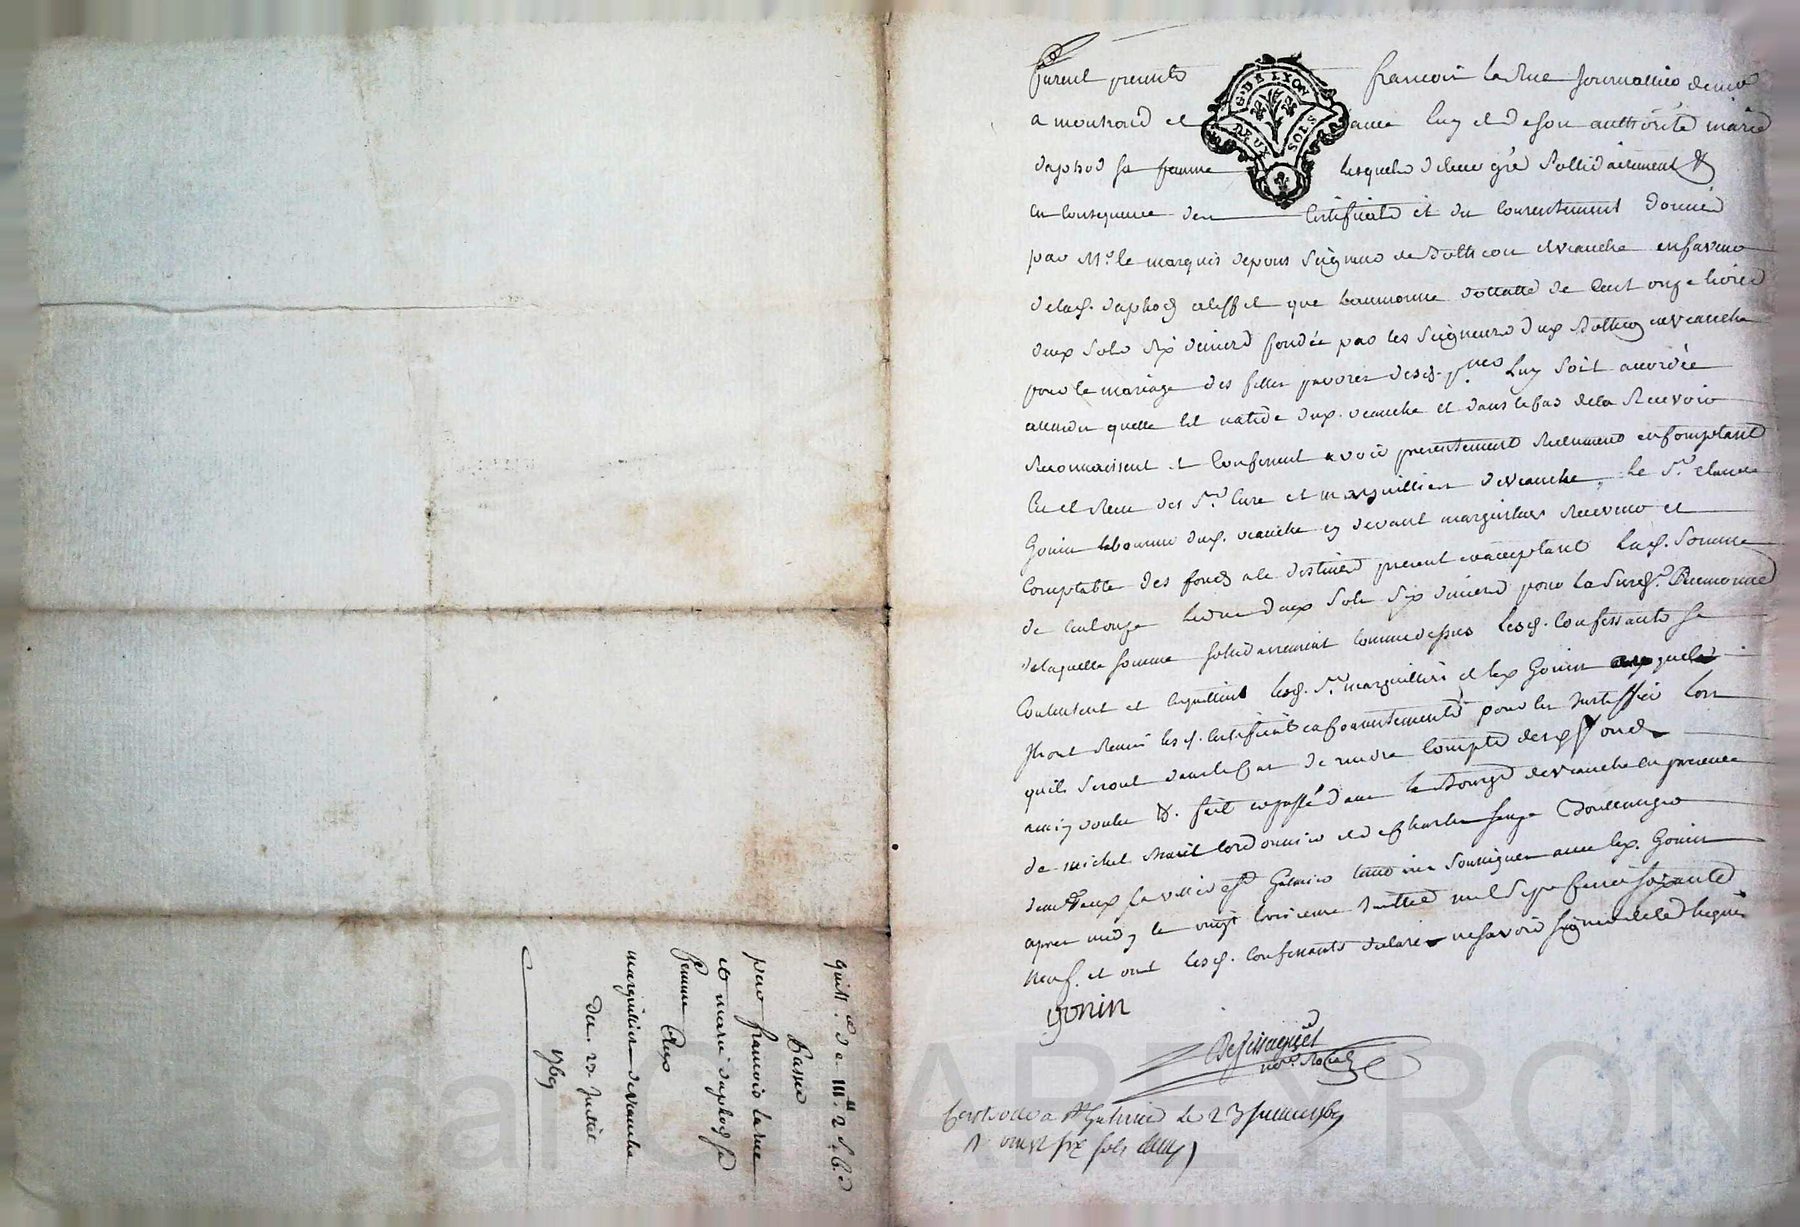 G. DE LYON
DEUX SOLS
furent presents francois la Rue Journallier demt
a montrond et avec luy et de son authorité marie
daphod sa femme lesquels de leur gré sollidairement &
en consequence des Certificats et du Consentement donnée
par Mr. le marquis depons Seigneur de Veauche en faveur
de lad. daphod que Laumonne dottalle de Cent onze livres
deux Sols six deniers fondée par les Seigneurs dud. et veauche
pour le mariage des filles pauvres desd. luy soit accordée
attendu quelle est native dud. veauche et dans le cas de la Recevoir
Reconnoissent et Confessent avoir presentement Reellement en Comptant
eu et Receu des Srs. Curé et marguilliers de Veauche, le Sr. Claude
Gonin laboureur dud. veauche cy devant marguillier Receveur et
Comptable des fonds a ce destinés present acceptant lad. Somme
de Cent onze livres deux Sols Six deniers pour la Susd. aumonne
de laquelle somme sollidairement comme dessus lesd. Confessants se
Contentent et en quittent lesd. Srs. marguilliers et led. Gonin auxquels
Ils ont Remis lesd. Certificat et Consentement pour les Justiffier lors
quils seront dans le Cas de rendre Compte desd. fonds
ainsy voulu &. fait et passé dans le Bourg de veauche en presence
de michel Cordonnier et de Charles Boullanger
demts. tous deux en la ville de St Galmier temoins Soussignés avec led. Gonin
apres midy le vingt troisieme Juillet mil sept Cents soixante
neuf. et ont lesd. Confessants declaré ne savoir signer de ce Requis
gonin
not. Royal
Controllé a St Galmier le 23 Juillet 1769
R vingt six sols
quitt.ce de 111ll. 2 s. 6 d
Passée
par francois la rue
et marie daphod sa
femme aux
marguilliers de veauche
du 23 Juillet
1769
Sdal CHAREYRON